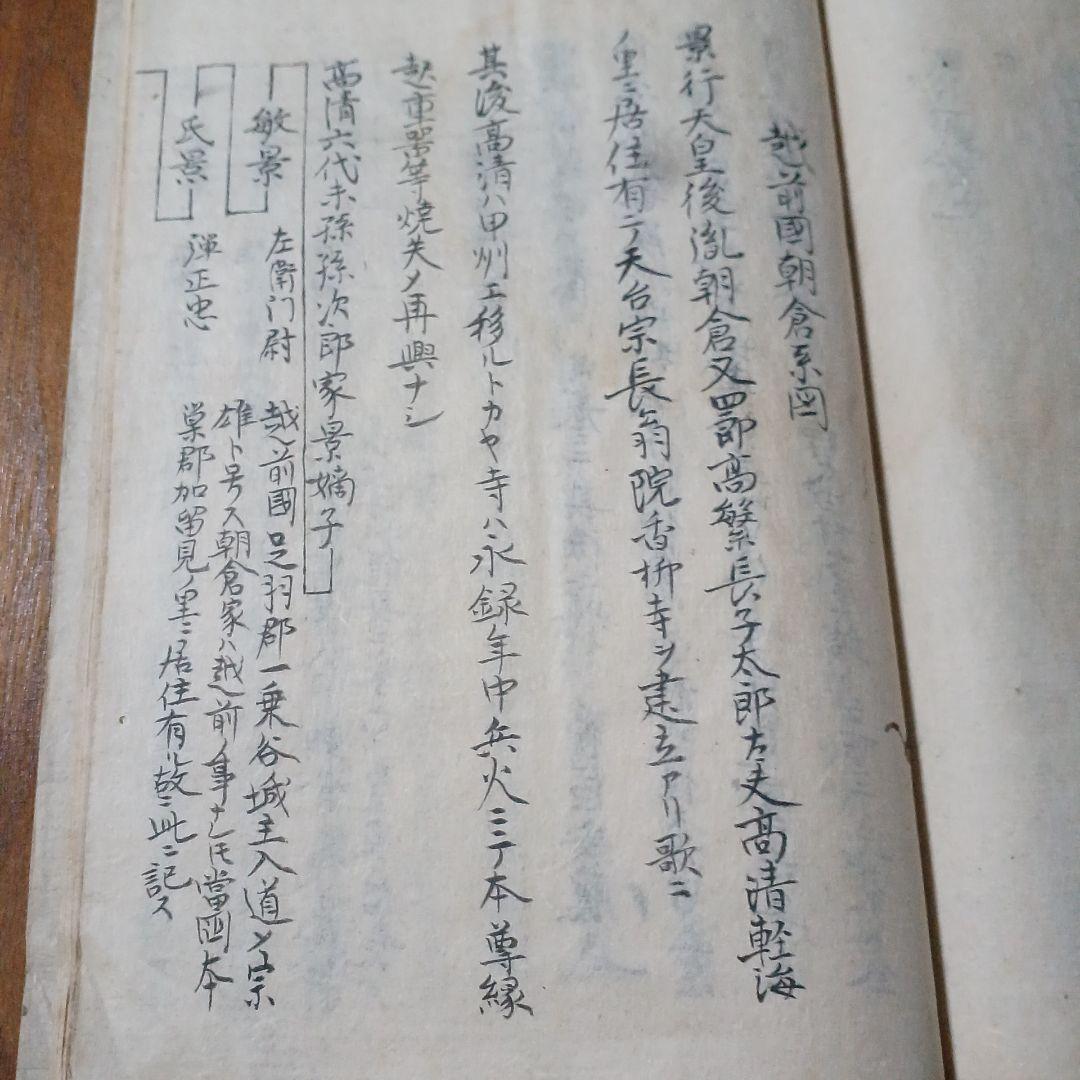 越前國朝倉系図
景行天皇後胤朝倉又四郎高繁長子太郎大夫高清軽海
ノ里ニ居住有テ天台宗長翁院香柳寺ヲ建立アリ歌ニ
其後高清ハ甲州エ移ルトカヤ寺ハ永録年中兵火ニテ本尊縁
起 焼失〆再興ナシ
高清六代末孫孫次郎家景嫡子
敏景 左衛門尉 越前國足羽郡一乗谷城主入道〆宗
雄ト号ス朝倉家ハ越前ノ事ナレ𪜈當國本
巣郡加留見ノ里ニ居住有ル故ニ此ニ記ス
氏景 弾正忠